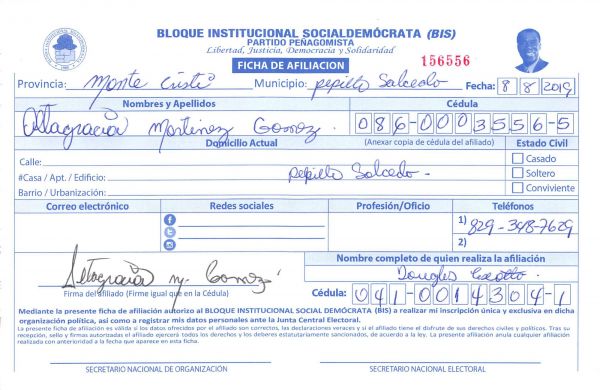 BLOQUE INSTITUCIONAL SOCIALDEMÓCRATA (BIS)
PARTIDO PEÑAGOMISTA
Libertad, Justicia, Democracia y Solidaridad
FICHA DE AFILIACION
156556
Provincia: Monte Cristi Municipio: Pepillo Salcedo Fecha: 8/8/2019
Nombres y Apellidos Cédula
Altagracia Martinez Gomez 086-0003556-5
Domicilio Actual (Anexar copia de cédula del afiliado) Estado Civil
Calle: Casado
#Casa / Apt. / Edificio: Pepillo Salcedo - Soltero
Barrio / Urbanización: Conviviente
Correo electrónico Redes sociales Profesión/Oficio Teléfonos
1) 829-348-7629
2)
Nombre completo de quien realiza la afiliación
Altagracia M. Gomez Douglas
Firma del afiliado (Firme igual que en la Cédula) Cédula: 041-0014304-1
Mediante la presente ficha de afiliación autorizo al BLOQUE INSTITUCIONAL SOCIAL DEMÓCRATA (BIS) a realizar mi inscripción única y exclusiva en dicha
organización política, así como a registrar mis datos personales ante la Junta Central Electoral.
La presente ficha de afiliación es válida si los datos ofrecidos por el afiliado son correctos, las declaraciones veraces y si el afiliado tiene el disfrute de sus derechos civiles y políticos. Tras su
recepción, sello y firmas autorizadas el afiliado ejercerá todos los derechos y los deberes estatutariamente sancionados, de acuerdo a la ley. La presente afiliación anula cualquier afiliación
realizada con anterioridad a la fecha que aparece en esta ficha.
SECRETARIO NACIONAL DE ORGANIZACIÓN SECRETARIO NACIONAL ELECTORAL